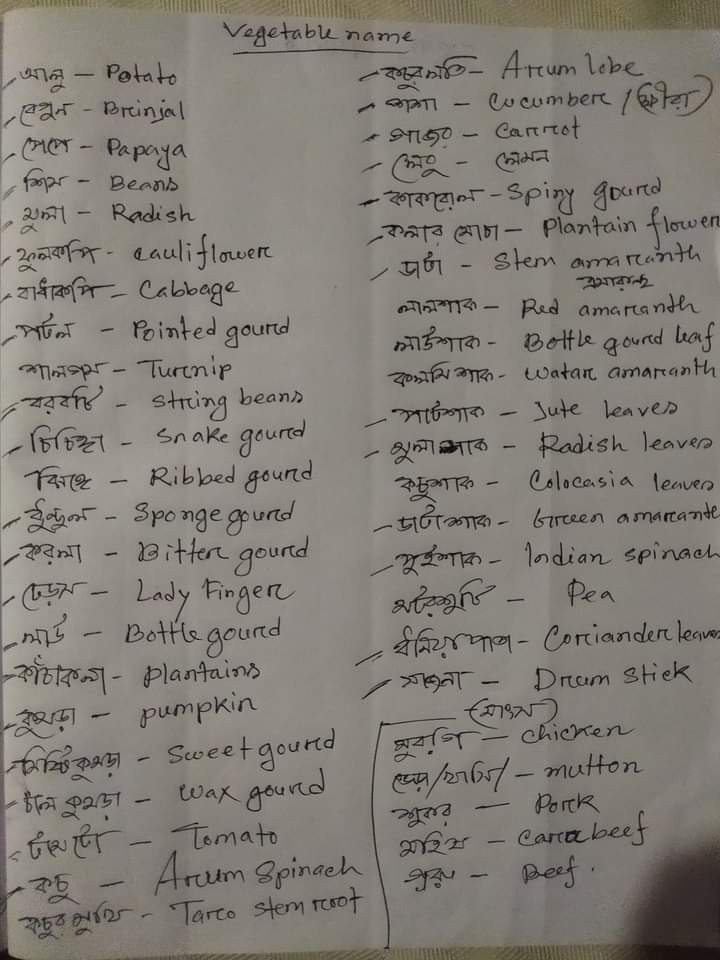 Vegetable name
আলু – Potato
বেগুন – Brinjal
পেপে – Papaya
শিম – Beans
মুলা – Radish
ফুলকপি - cauliflower
বাধাকপি – Cabbage
পটল – Pointed gourd
শালগম – Turnip
বরবটি – string beans
চিচিঙ্গা – Snake gourd
ঝিঙ্গে – Ribbed gourd
ধুন্দুল – Sponge gourd
করলা – Bitter gourd
ঢেড়স – Lady Finger
লাউ – Bottle gourd
কাঁচাকলা – plantains
কুমড়া – pumpkin
মিষ্টি কুমড়া – Sweet gourd
চাল কুমড়া – Wax gourd
টমেটো – Tomato
কচু – Arum Spinach
কচুর মুখি – Tarco stem root
কচুর লতি – Arum lobe
শশা – Cucumber / (ক্ষীরা)
গাজর – Carrot
লেবু – লেমন
কাকরোল – Spiny gourd
কলার মোচা – Plantain flower
ডাটা – Stem amaranth
লালশাক – Red amaranth
লাউশাক – Bottle gourd leaf
কলমি শাক – Watar amaranth
পাটশাক – Jute leaves
মুলা শাক – Radish leaves
কচুশাক – Colocasia leaves
ডাটা শাক – Green amarante
পুইশাক – Indian spinach
মটরশুটি – Pea
ধনিয়াপাতা – Coriander leaves
সাজনা – Drum stick
(মাংস)
মুরগি – chicken
ভেড়া/খাসি/ – mutton
শুকর – Pork
মহিষ – Carabeef
গুরু – Beef.